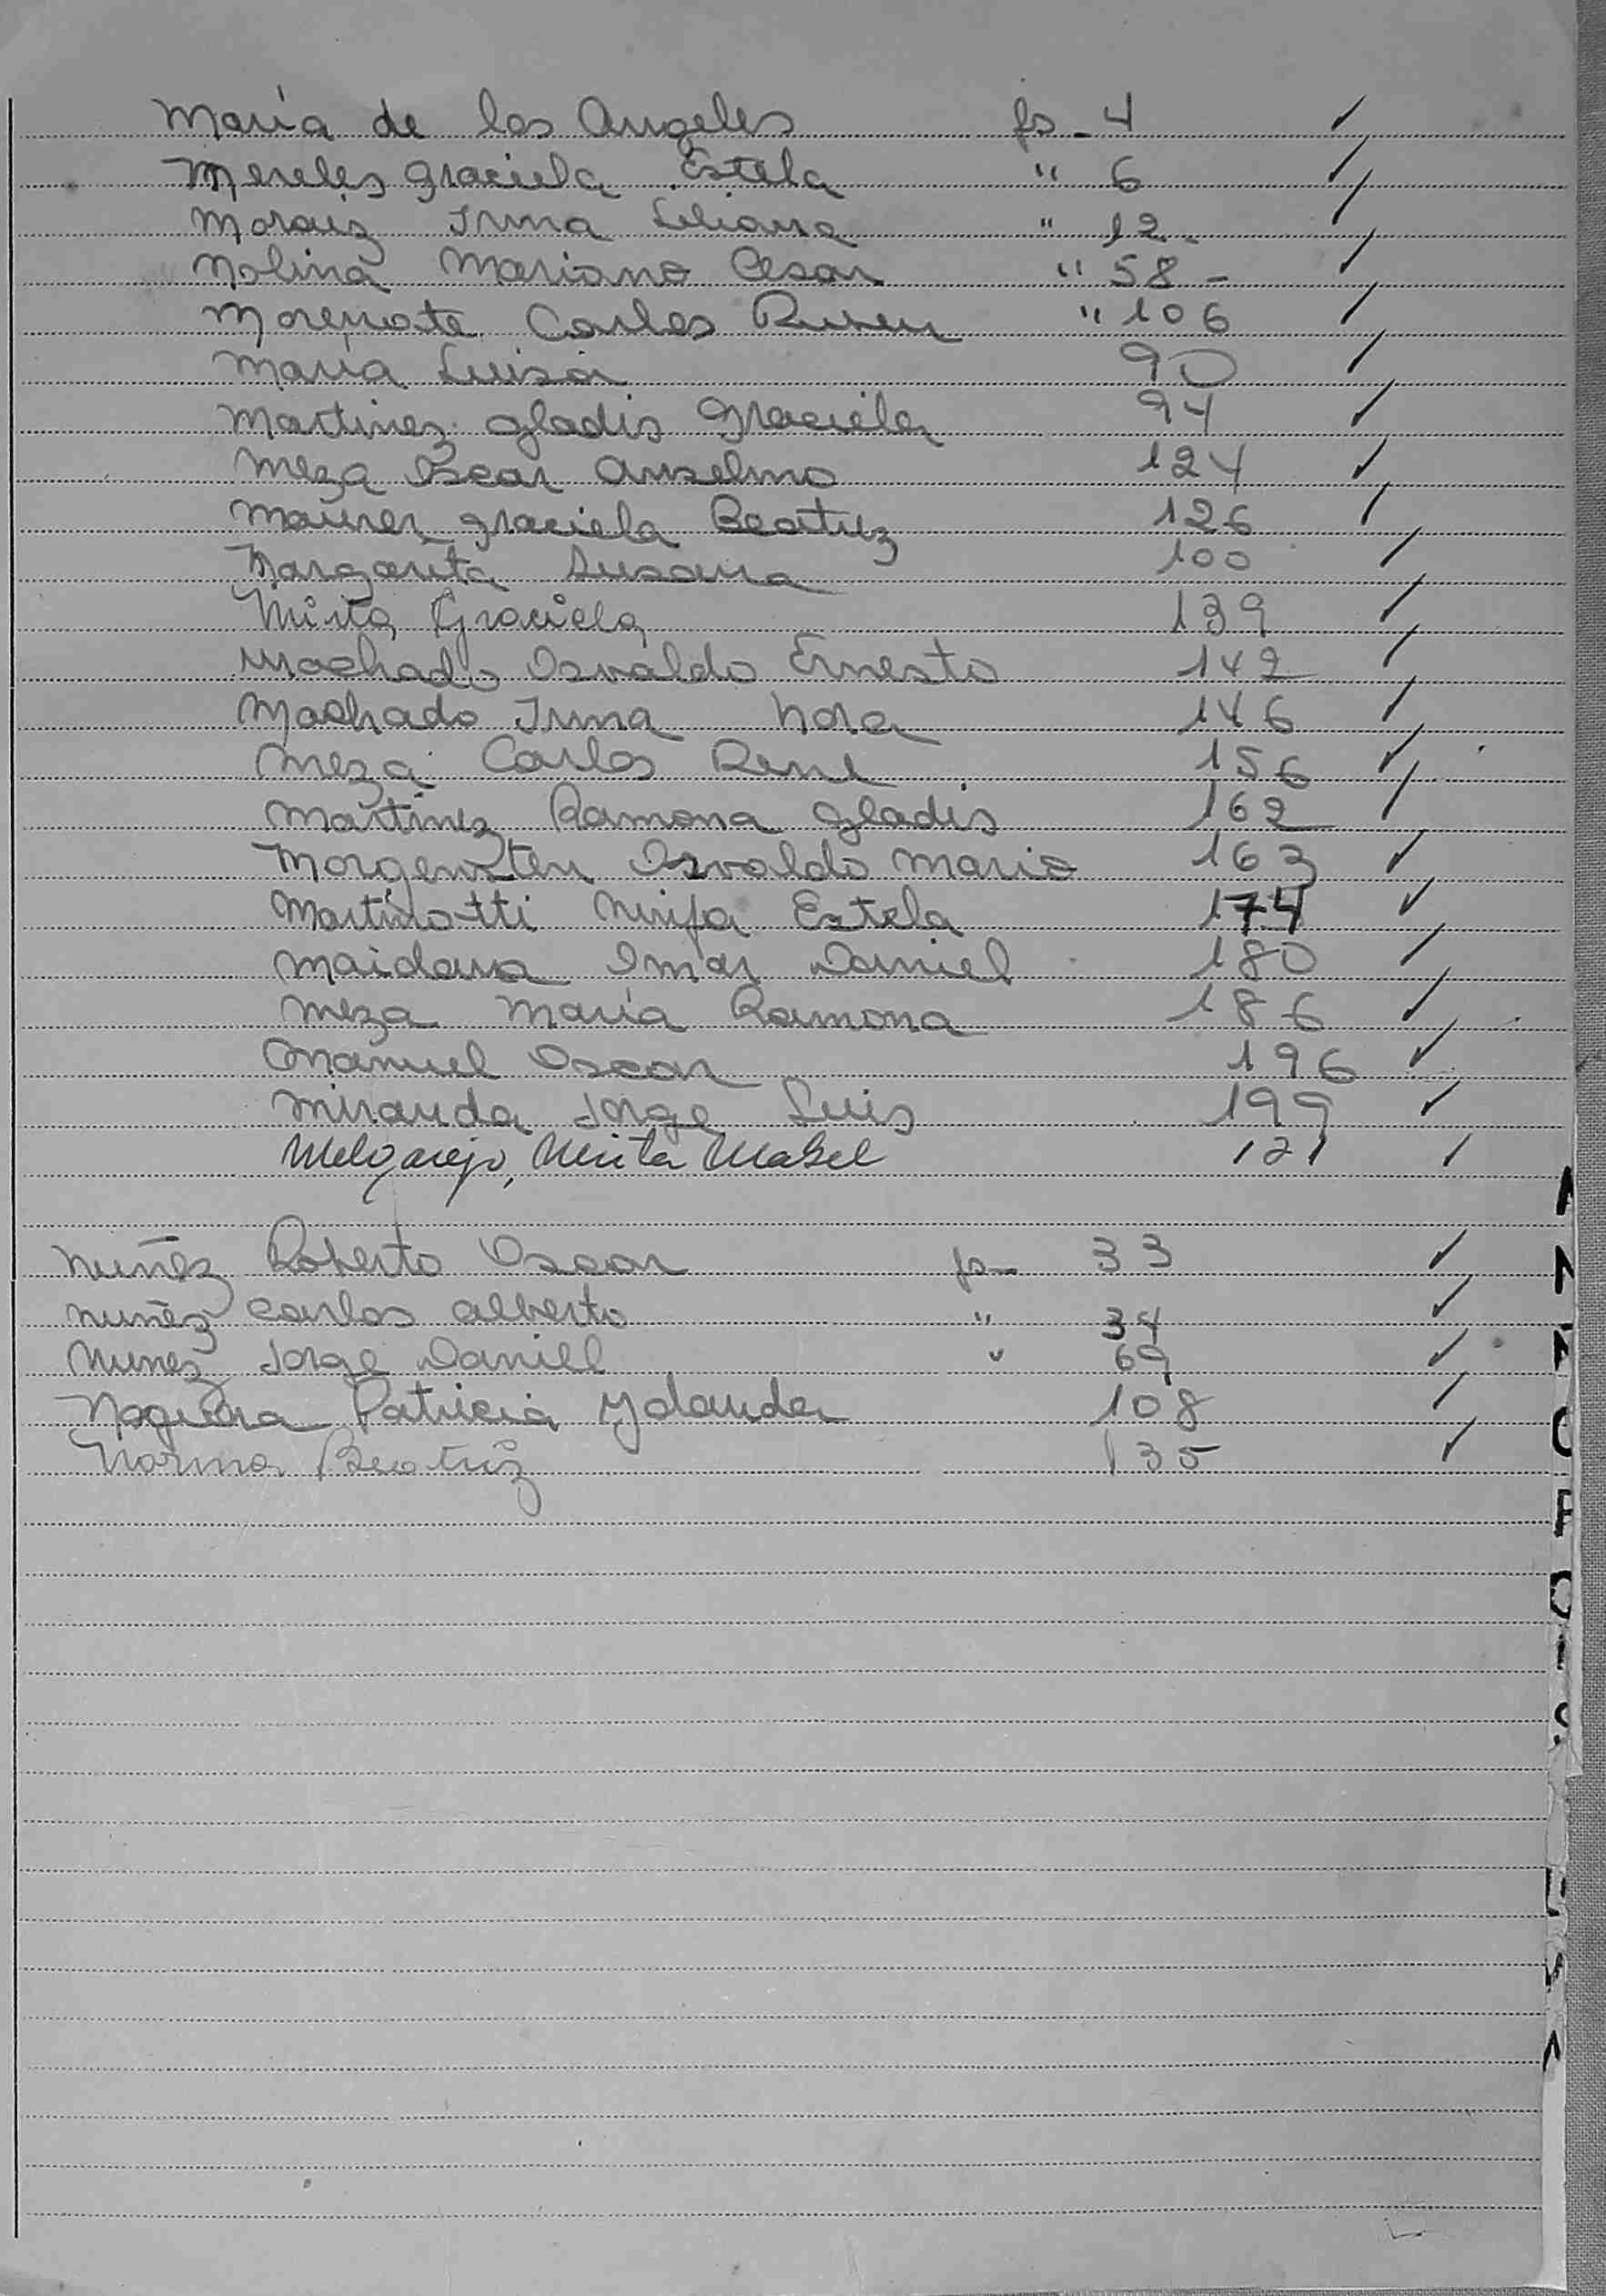 Maria de los Angeles fs - 4 ✓
Mereles Graciela Estela " 6 ✓
Moraiz Irma Liliana " 12 - ✓
Molina Mariano Cesar " 58 - ✓
Carlos Ruben " 106 ✓
Maria Luisa 90 ✓
Martinez Gladis Graciela 94 ✓
Meza Oscar Anselmo 124 ✓
Maurer Graciela Beatriz 126 ✓
Margarita Susana 100 ✓
Mirta Graciela 139 ✓
Machado Osvaldo Ernesto 142 ✓
Machado Irma Nora 146 ✓
Meza Carlos Rene 156 ✓
Martinez Ramona Gladis 162 ✓
Morgensten Osvaldo Mario 163 ✓
Martinotti Ninfa Estela 174 ✓
Maidana Omar Daniel 180 ✓
Meza Maria Ramona 186 ✓
Manuel Oscar 196 ✓
Miranda Jorge Luis 199 ✓
Melgarejo, Mirta Mabel 121 ✓
Nuñez Roberto Oscar fs - 33 ✓
Nuñez Carlos Alberto " 34 ✓
Nunez Jorge Daniel " 69 ✓
Noguera Patricia Yolanda 108 ✓
Norma Beatriz 135 ✓